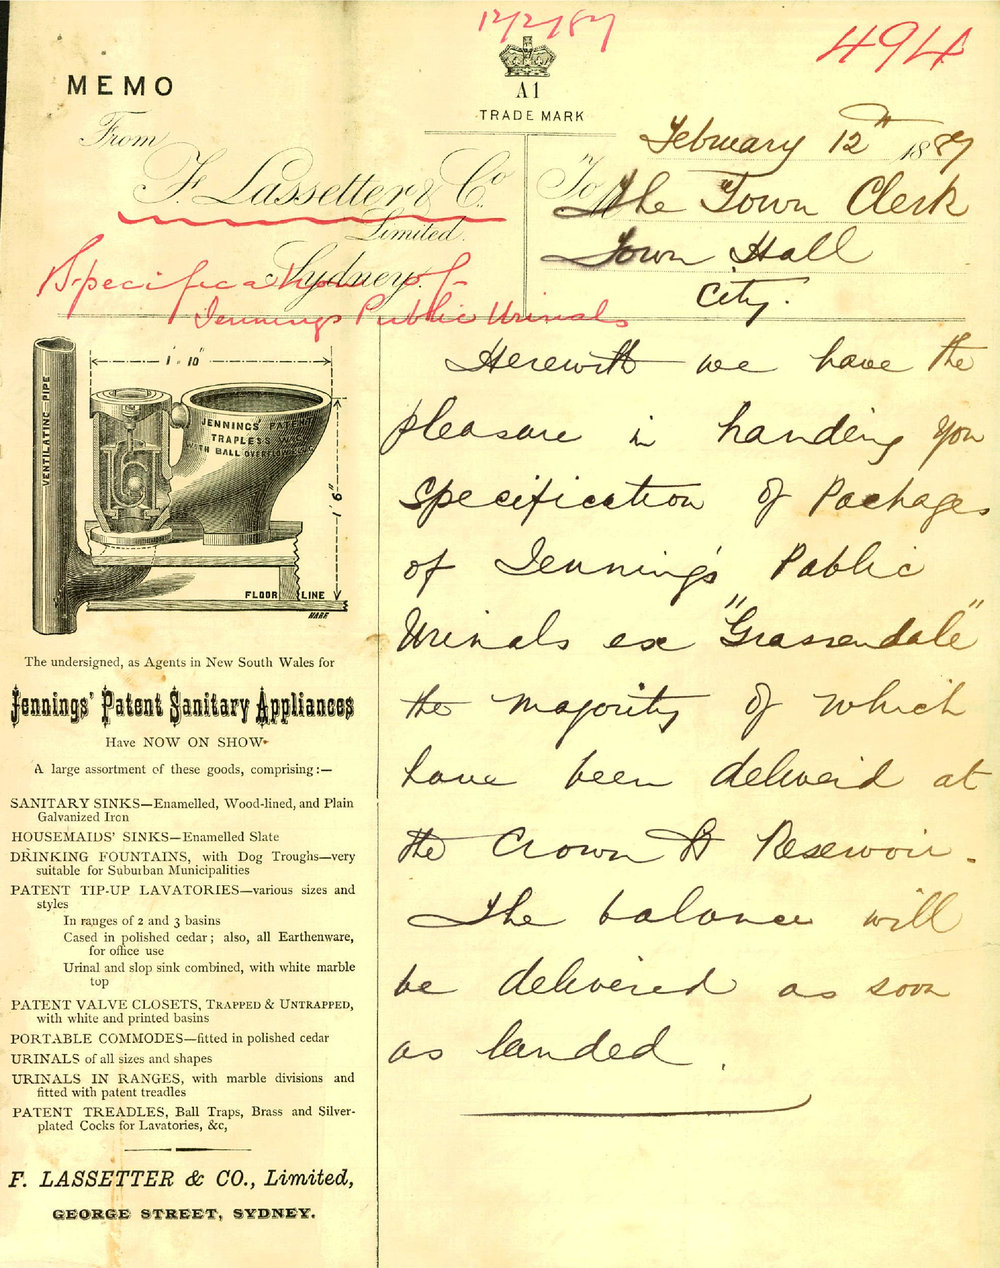 12/2/87
494
MEMO
A1
TRADE MARK
From
F. Lassetter & Co
Limited.
Sydney.
Specification of
Jennings Public Urinals
February 12th 1887
To
The Town Clerk
Town Hall
City.
1'·10"
VENTILATING PIPE
JENNINGS' PATENT
TRAPLESS W.C.
WITH BALL OVERFLOW
1'·6"
FLOOR LINE
HARE
The undersigned, as Agents in New South Wales for
Jennings' Patent Sanitary Appliances
Have NOW ON SHOW
A large assortment of these goods, comprising:—
SANITARY SINKS—Enamelled, Wood-lined, and Plain
Galvanized Iron
HOUSEMAIDS' SINKS—Enamelled Slate
DRINKING FOUNTAINS, with Dog Troughs—very
suitable for Suburban Municipalities
PATENT TIP-UP LAVATORIES—various sizes and
styles
In ranges of 2 and 3 basins
Cased in polished cedar; also, all Earthenware,
for office use
Urinal and slop sink combined, with white marble
top
PATENT VALVE CLOSETS, TRAPPED & UNTRAPPED,
with white and printed basins
PORTABLE COMMODES—fitted in polished cedar
URINALS of all sizes and shapes
URINALS IN RANGES, with marble divisions and
fitted with patent treadles
PATENT TREADLES, Ball Traps, Brass and Silver-
plated Cocks for Lavatories, &c,
F. LASSETTER & CO., Limited,
GEORGE STREET, SYDNEY.
Herewith we have the
pleasure in handing you
Specification of Packages
of Jenning's Public
Urinals ex "Grassendale"
the majority of which
have been deliverd at
the Crown St Reservoir.
The balance will
be delivered as soon
as landed.